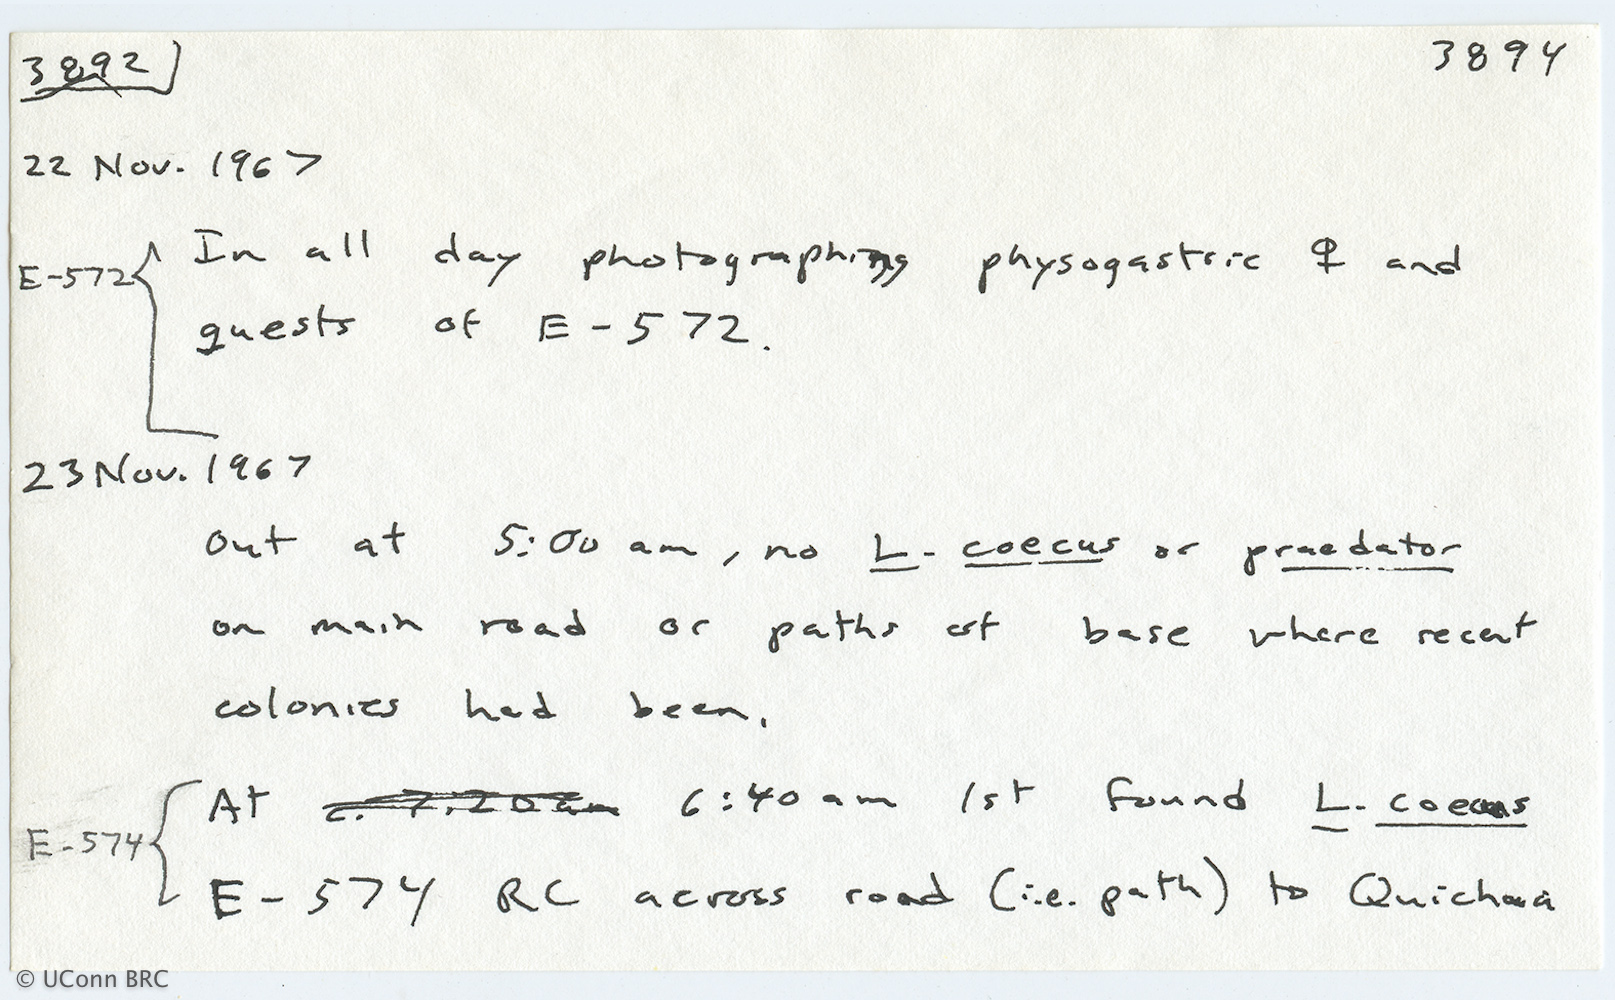 3892 3894
22 Nov. 1967
E-572 In all day photographing physogastric ♀ and
guests of E-572.
23 Nov. 1967
Out at 5:00 am, no L. coecus or praedator
on main road or paths of base where recent
colonies had been.
At c. 7:20am 6:40 am 1st found L. coecus
E-574
E-574 RC across road (i.e. path) to Quichua
© UConn BRC